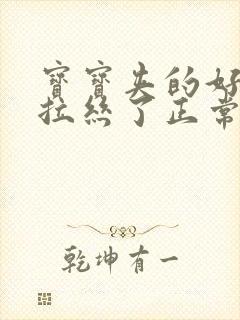 寶寶夹的好
拉絲了正常
乾坤有一